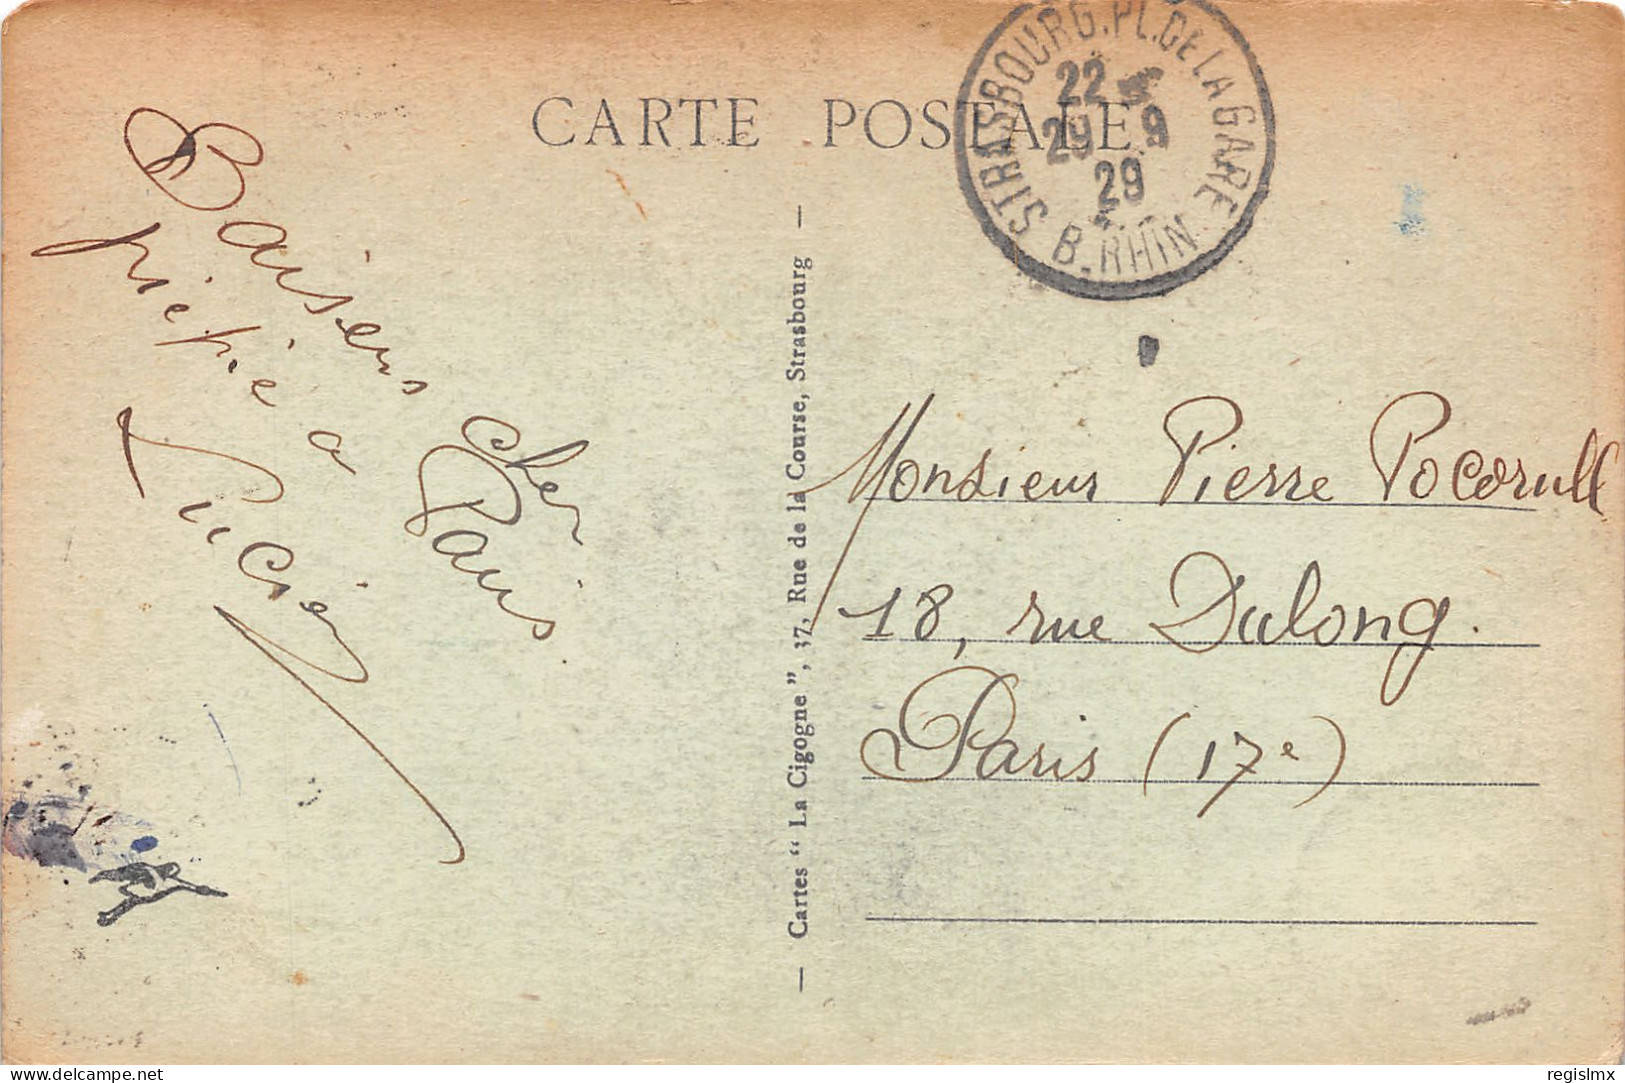 CARTE POSTALE
STRASBOURG.PL.DE LA GARE
22
29 9
29
B. RHIN
Baisers cher
à Paris
Lucien
Cartes “ La Cigogne ”, 37, Rue de la Course, Strasbourg
Monsieur Pierre
18, rue Dulong.
Paris (17e)
delcampe.net
regislmx